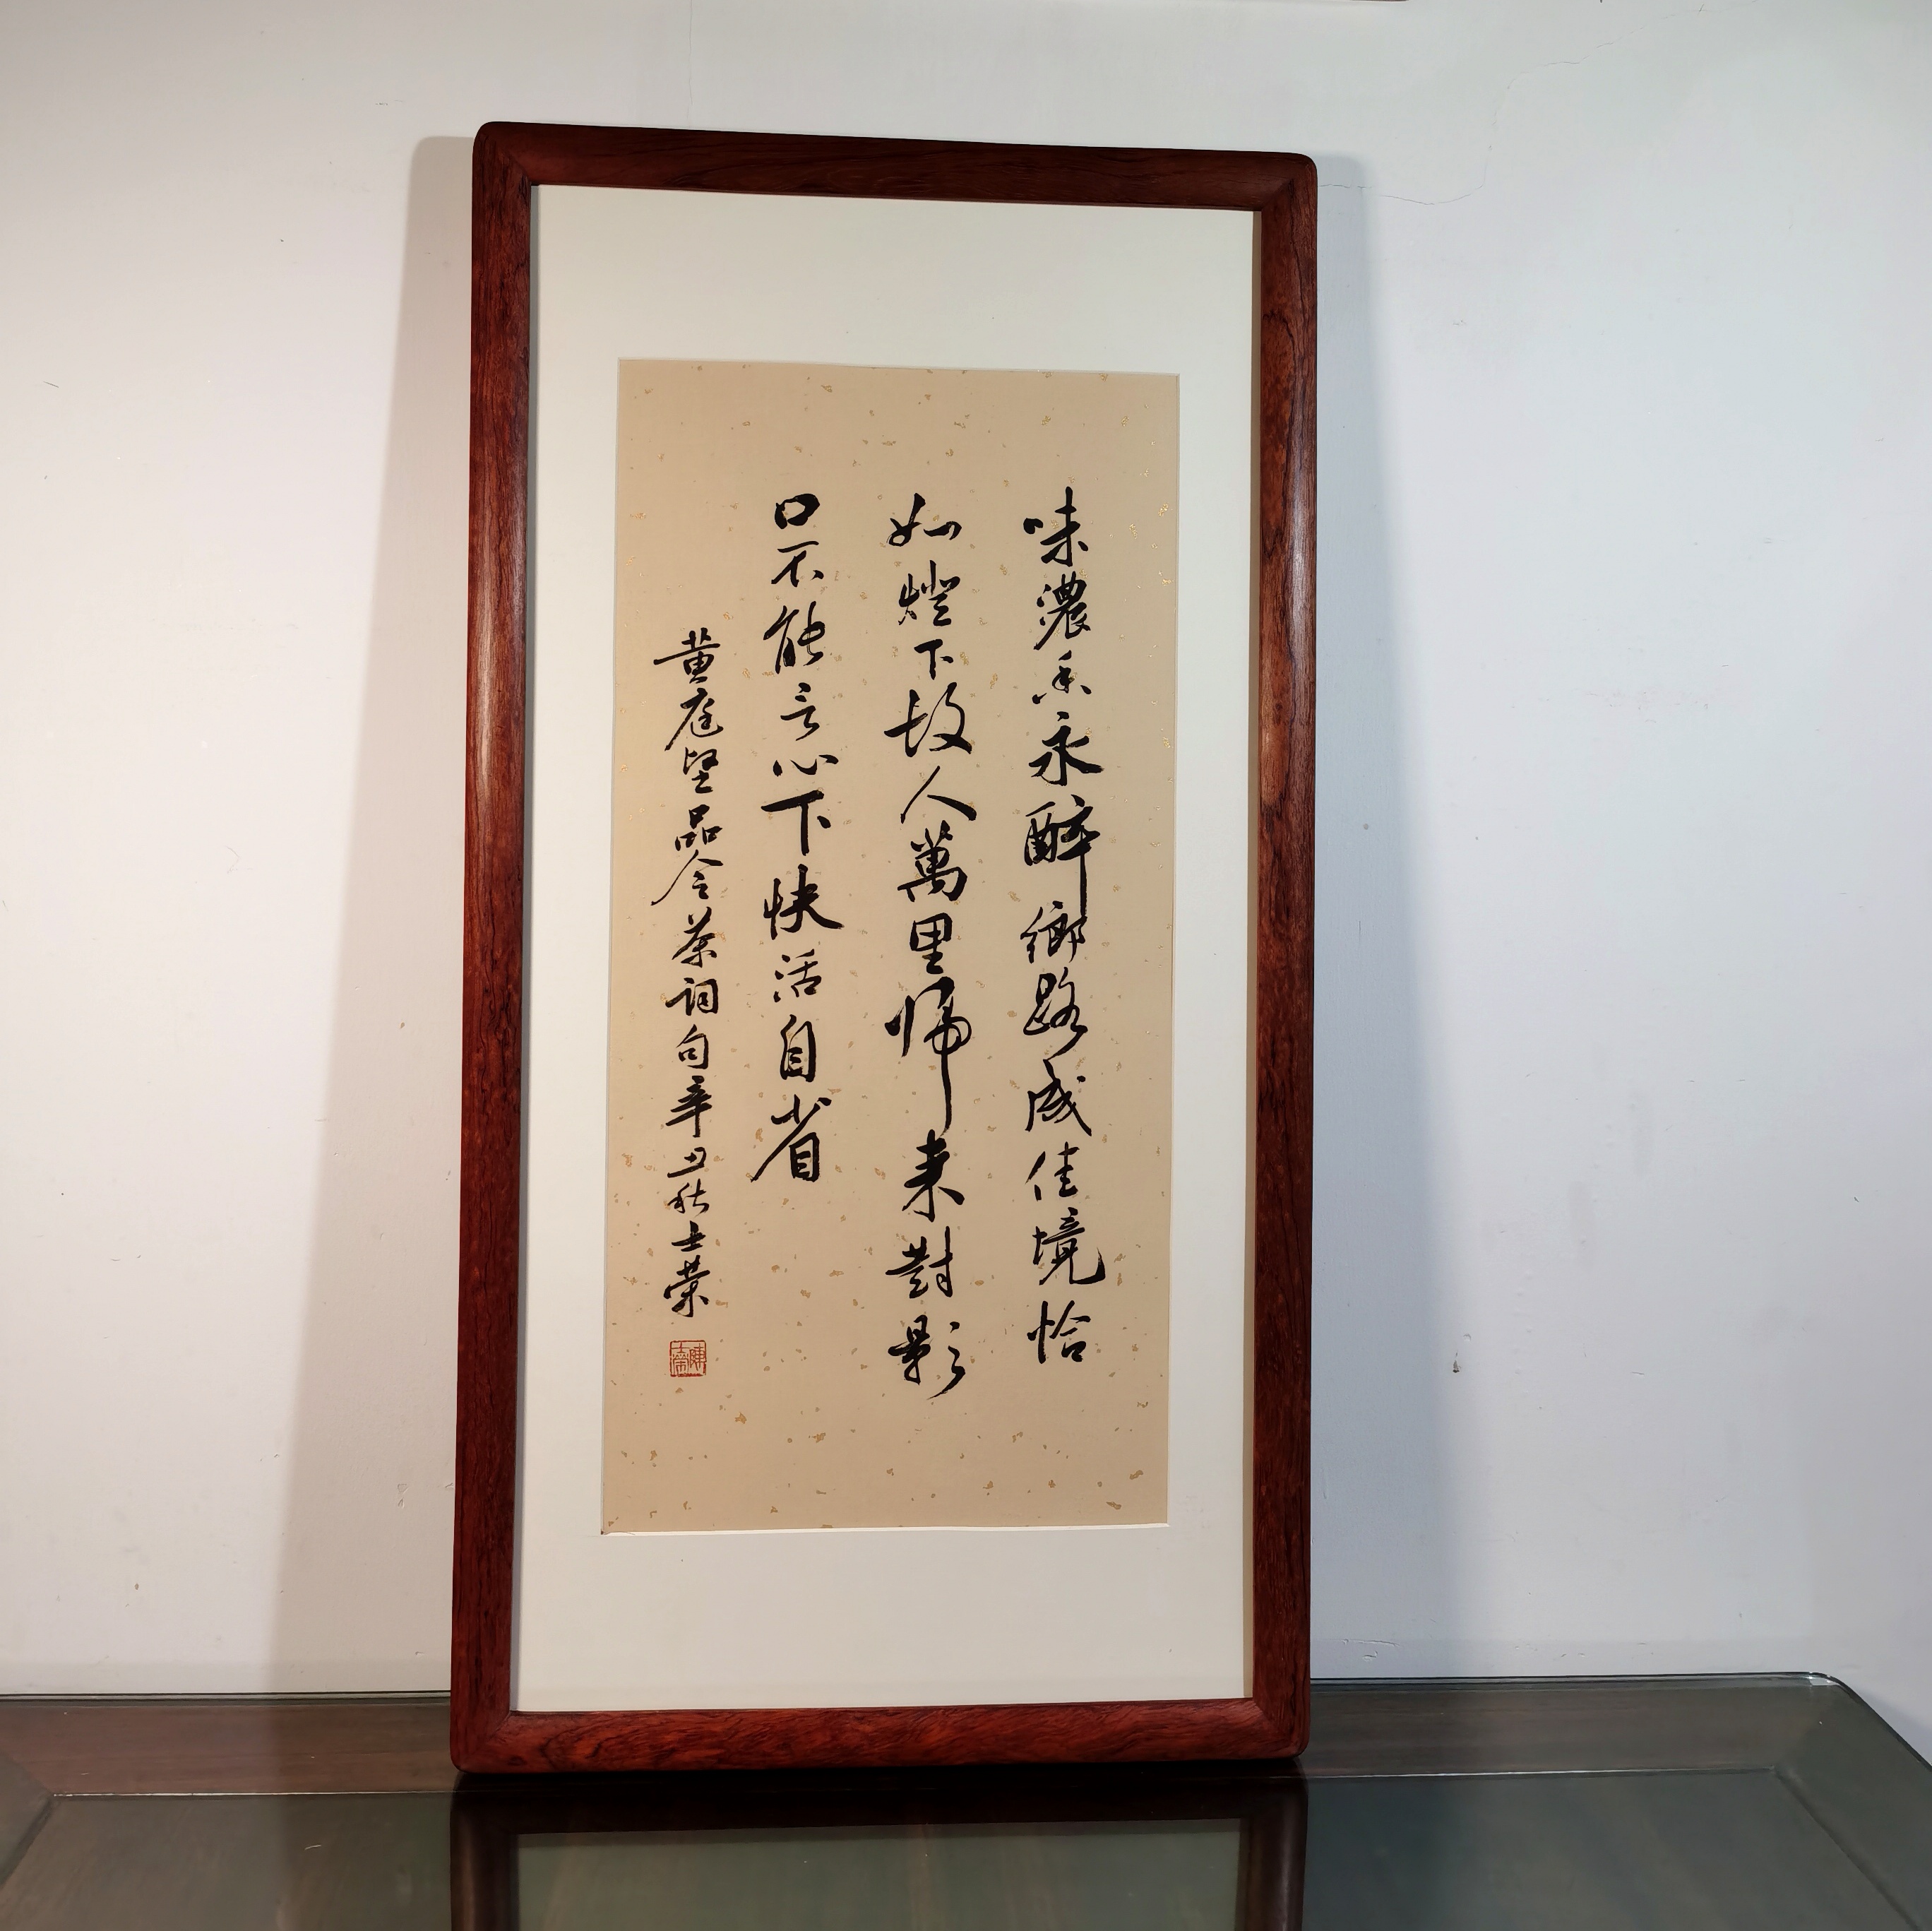 味濃香永醉鄉路成佳境恰
如燈下故人萬里歸來對影
口不能言心下快活自省
黃庭堅品令茶詞句辛丑秋士榮
陳士榮